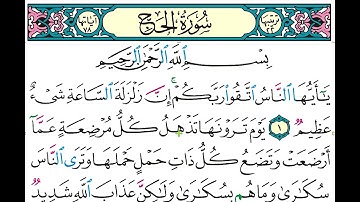 سُورَةُ الحَجِّ
بِسْمِ ٱللَّهِ ٱلرَّحْمَٰنِ ٱلرَّحِيمِ
يَٰٓأَيُّهَا ٱلنَّاسُ ٱتَّقُوا۟ رَبَّكُمْ ۚ إِنَّ زَلْزَلَةَ ٱلسَّاعَةِ شَىْءٌ
عَظِيمٌ ١ يَوْمَ تَرَوْنَهَا تَذْهَلُ كُلُّ مُرْضِعَةٍ عَمَّآ
أَرْضَعَتْ وَتَضَعُ كُلُّ ذَاتِ حَمْلٍ حَمْلَهَا وَتَرَى ٱلنَّاسَ
سُكَٰرَىٰ وَمَا هُم بِسُكَٰرَىٰ وَلَٰكِنَّ عَذَابَ ٱللَّهِ شَدِيدٌ